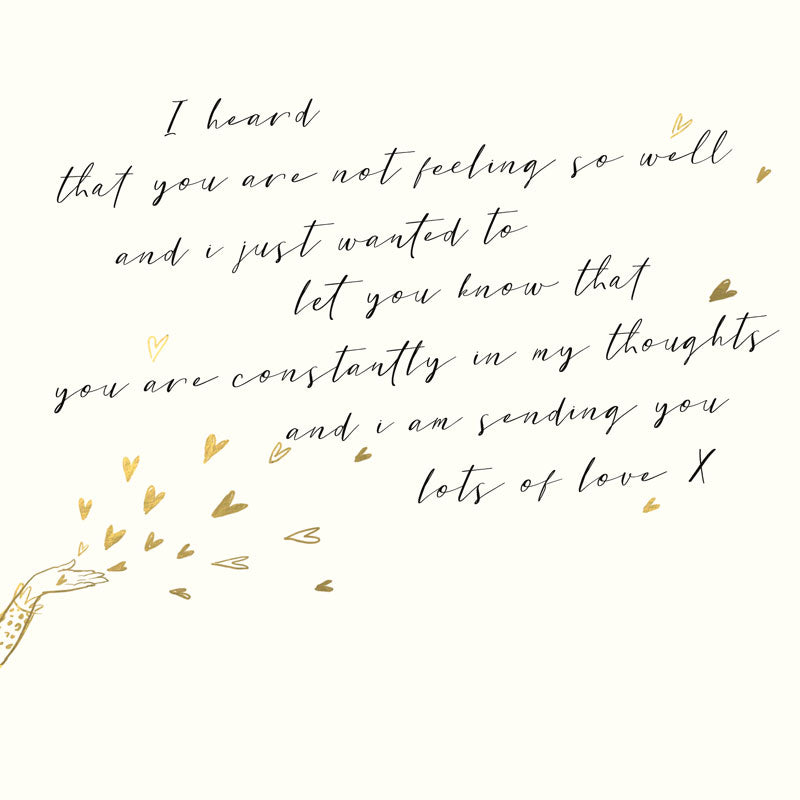 I heard
that you are not feeling so well
and i just wanted to
let you know that
you are constantly in my thoughts
and i am sending you
lots of love X